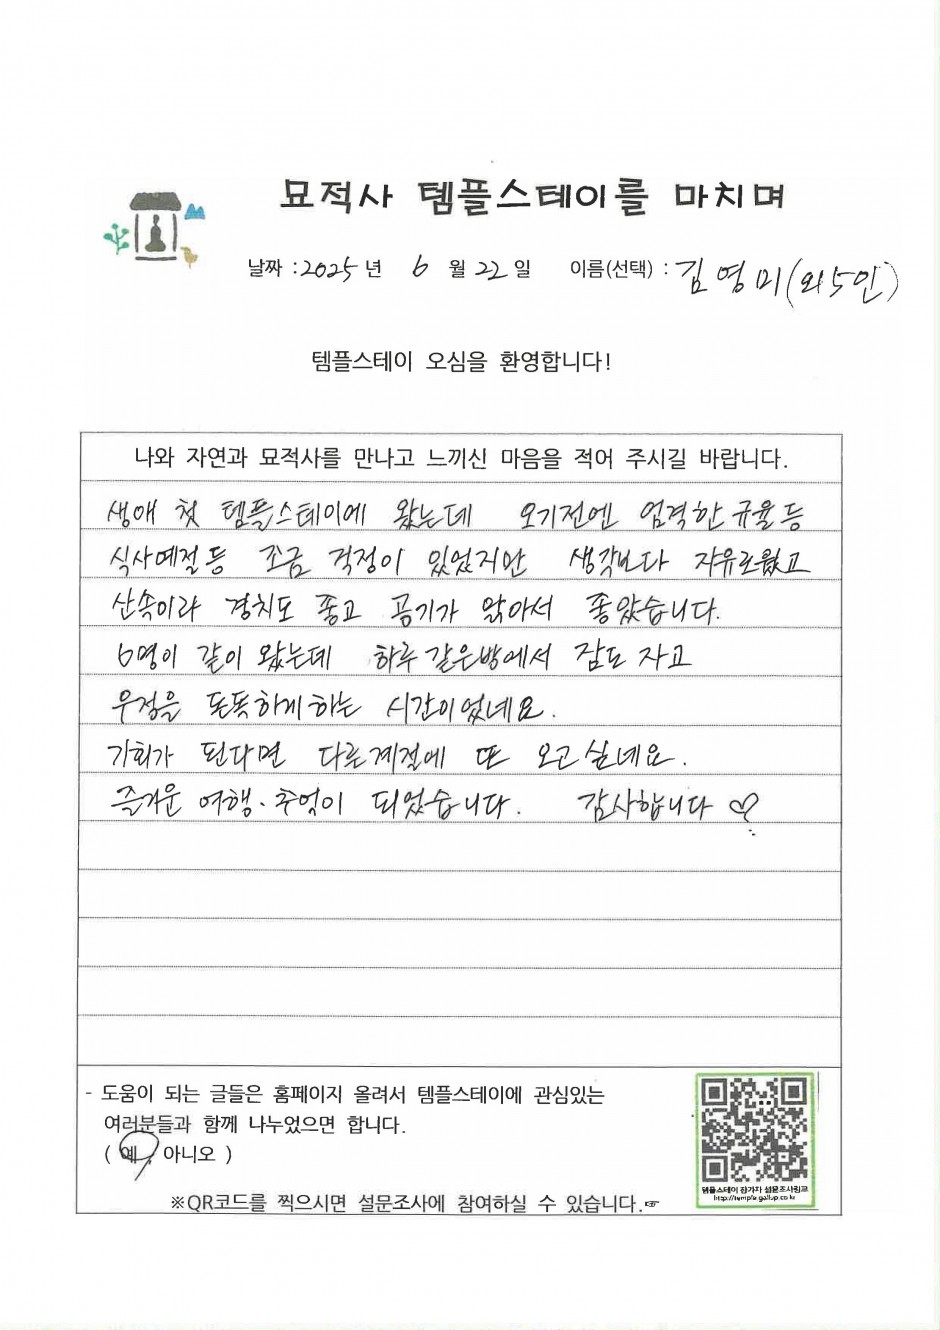 묘적사 템플스테이를 마치며
날짜 : 2025 년 6 월 22 일 이름(선택) : 김영미(외5인)
템플스테이 오심을 환영합니다!
나와 자연과 묘적사를 만나고 느끼신 마음을 적어 주시길 바랍니다.
생애 첫 템플스테이에 왔는데 오기전엔 엄격한 규율등
식사예절등 조금 걱정이 있었지만 생각보다 자유로웠고
산속이라 경치도 좋고 공기가 맑아서 좋았습니다.
6명이 같이 왔는데 하루 같은방에서 잠도 자고
우정을 돈독하게하는 시간이었네요.
기회가 된다면 다른계절에 또 오고싶네요.
즐거운 여행·추억이 되었습니다. 감사합니다 ♡
- 도움이 되는 글들은 홈페이지 올려서 템플스테이에 관심있는
여러분들과 함께 나누었으면 합니다.
( 예, 아니오 )
템플스테이 참가자 설문조사링크
http://temple.gallup.co.kr
※QR코드를 찍으시면 설문조사에 참여하실 수 있습니다.☞